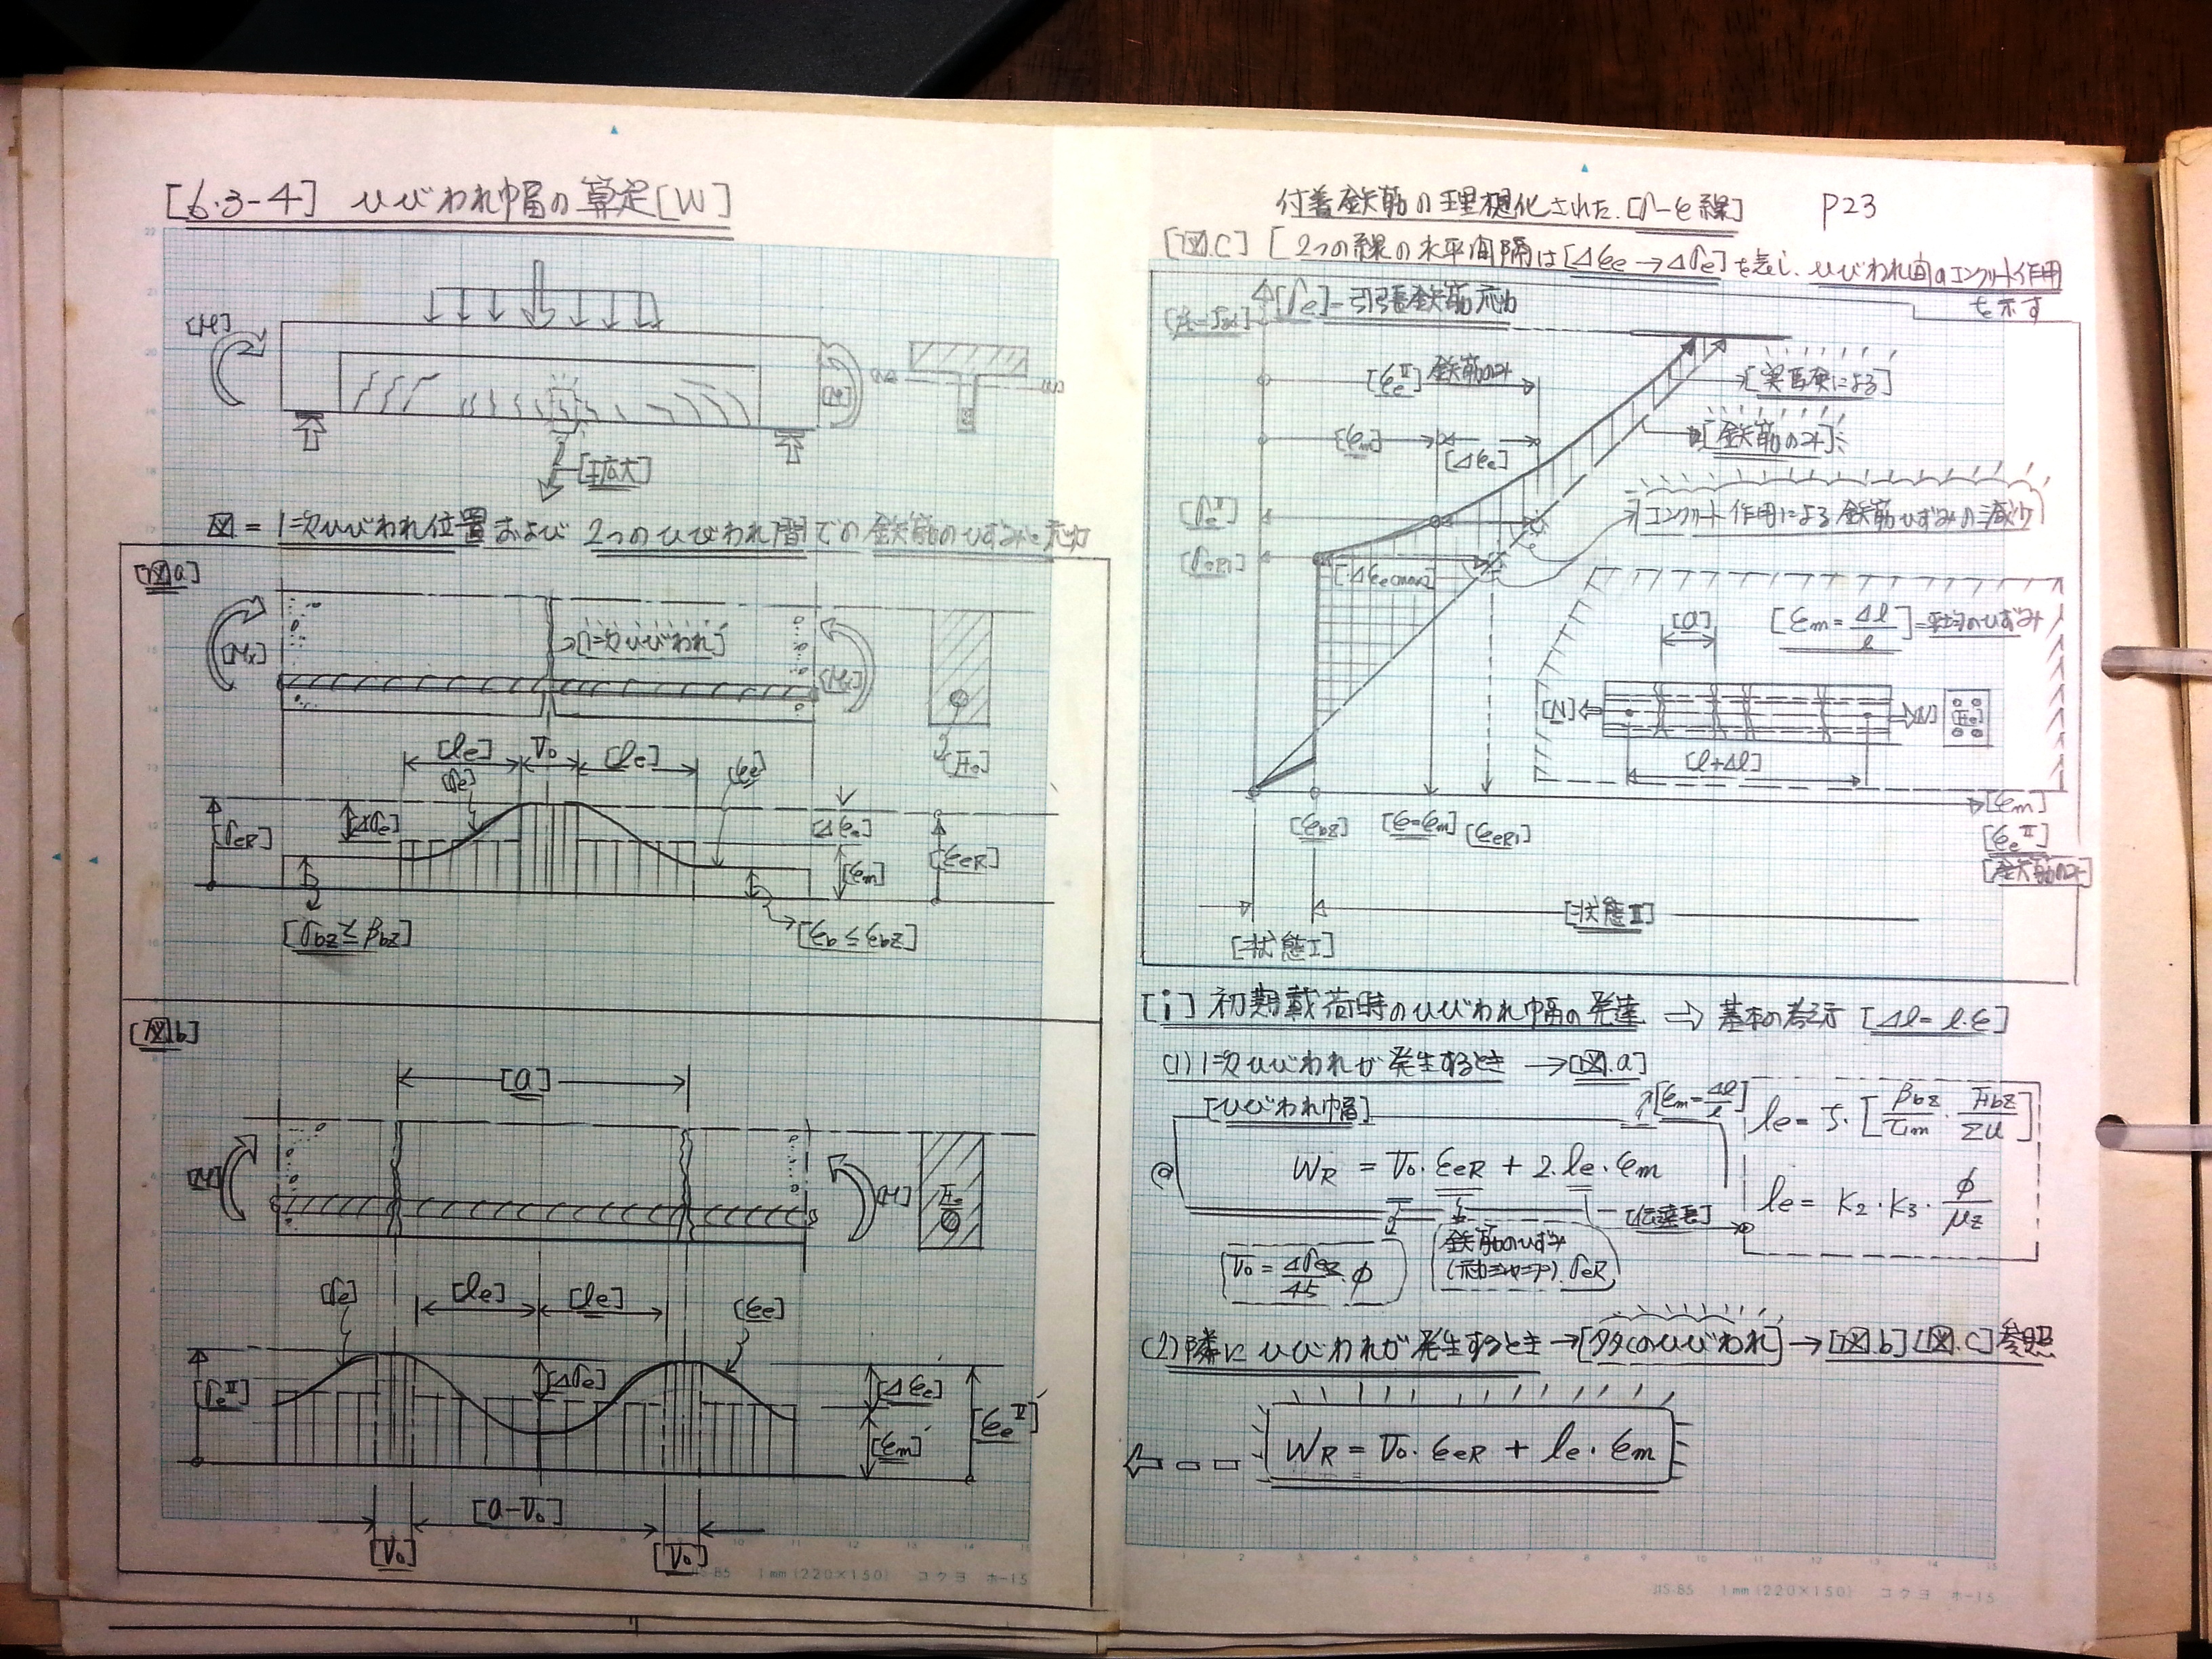 [6・3-4] ひびわれ巾の算定[W]
[M]
[M]
[拡大]
図 = 1次ひびわれ位置および 2つのひびわれ間での鉄筋のひずみと応力
[図a]
[Mx]
[1次ひびわれ]
[Mx]
[le] V₀ [le]
[σe]
[εe]
[Fe]
[σeR]
[Δσe]
[Δεe]
[εm]
[εeR]
[σbz ≤ βbz]
[εb ≤ εbz]
[図b]
[a]
[M]
[M]
Fe
[σe]
[le] [le]
[εe]
[σeᴵᴵ]
[Δσe]
[Δεe]
[εm]
[εeᴵᴵ]
[a-V₀]
[V₀] [V₀]
JIS B5 1mm (220×150) コクヨ ホ-15
付着鉄筋の理想化された.[σ-ε線] P23
[図.C] [2つの線の水平間隔は[Δεe→Δσe]を表し、ひびわれ間のコンクリート作用
を示す
[σe]=引張鉄筋応力
[εeᴵᴵ] 鉄筋のみ
[実際による]
[εm]
[Δεe]
[鉄筋のみ]
[σeᴵᴵ]
コンクリート作用による鉄筋ひずみの減少
[σeR1]
[Δεe max]
[a]
[εm = Δl/l]=平均のひずみ
[N] [N]
[Fe]
[l+Δl]
[εm]
[εbz] [ε=εm] [εeR1]
[εeᴵᴵ]
[鉄筋のみ]
[状態Ⅱ]
[状態Ⅰ]
[i] 初期載荷時のひびわれ巾の発達 ⇒ 基本の考え方 [Δl=l・ε]
(1) 1次ひびわれが発生するとき → [図.a]
[ひびわれ巾]
[εm=Δl/l]
le = ζ・[βbz/τ1m・Fbz/ΣU]
ⓐ WR = V₀・εeR + 2・le・εm
le = K₂・K₃・φ/μz
[伝達長]
V₀ = Δσez/45・φ
鉄筋のひずみ
σeR
(2) 隣にひびわれが発生するとき→[多くのひびわれ]→[図.b][図.C]参照
WR = V₀・εeR + le・εm
JIS B5 1mm (220×150) コクヨ ホ-15